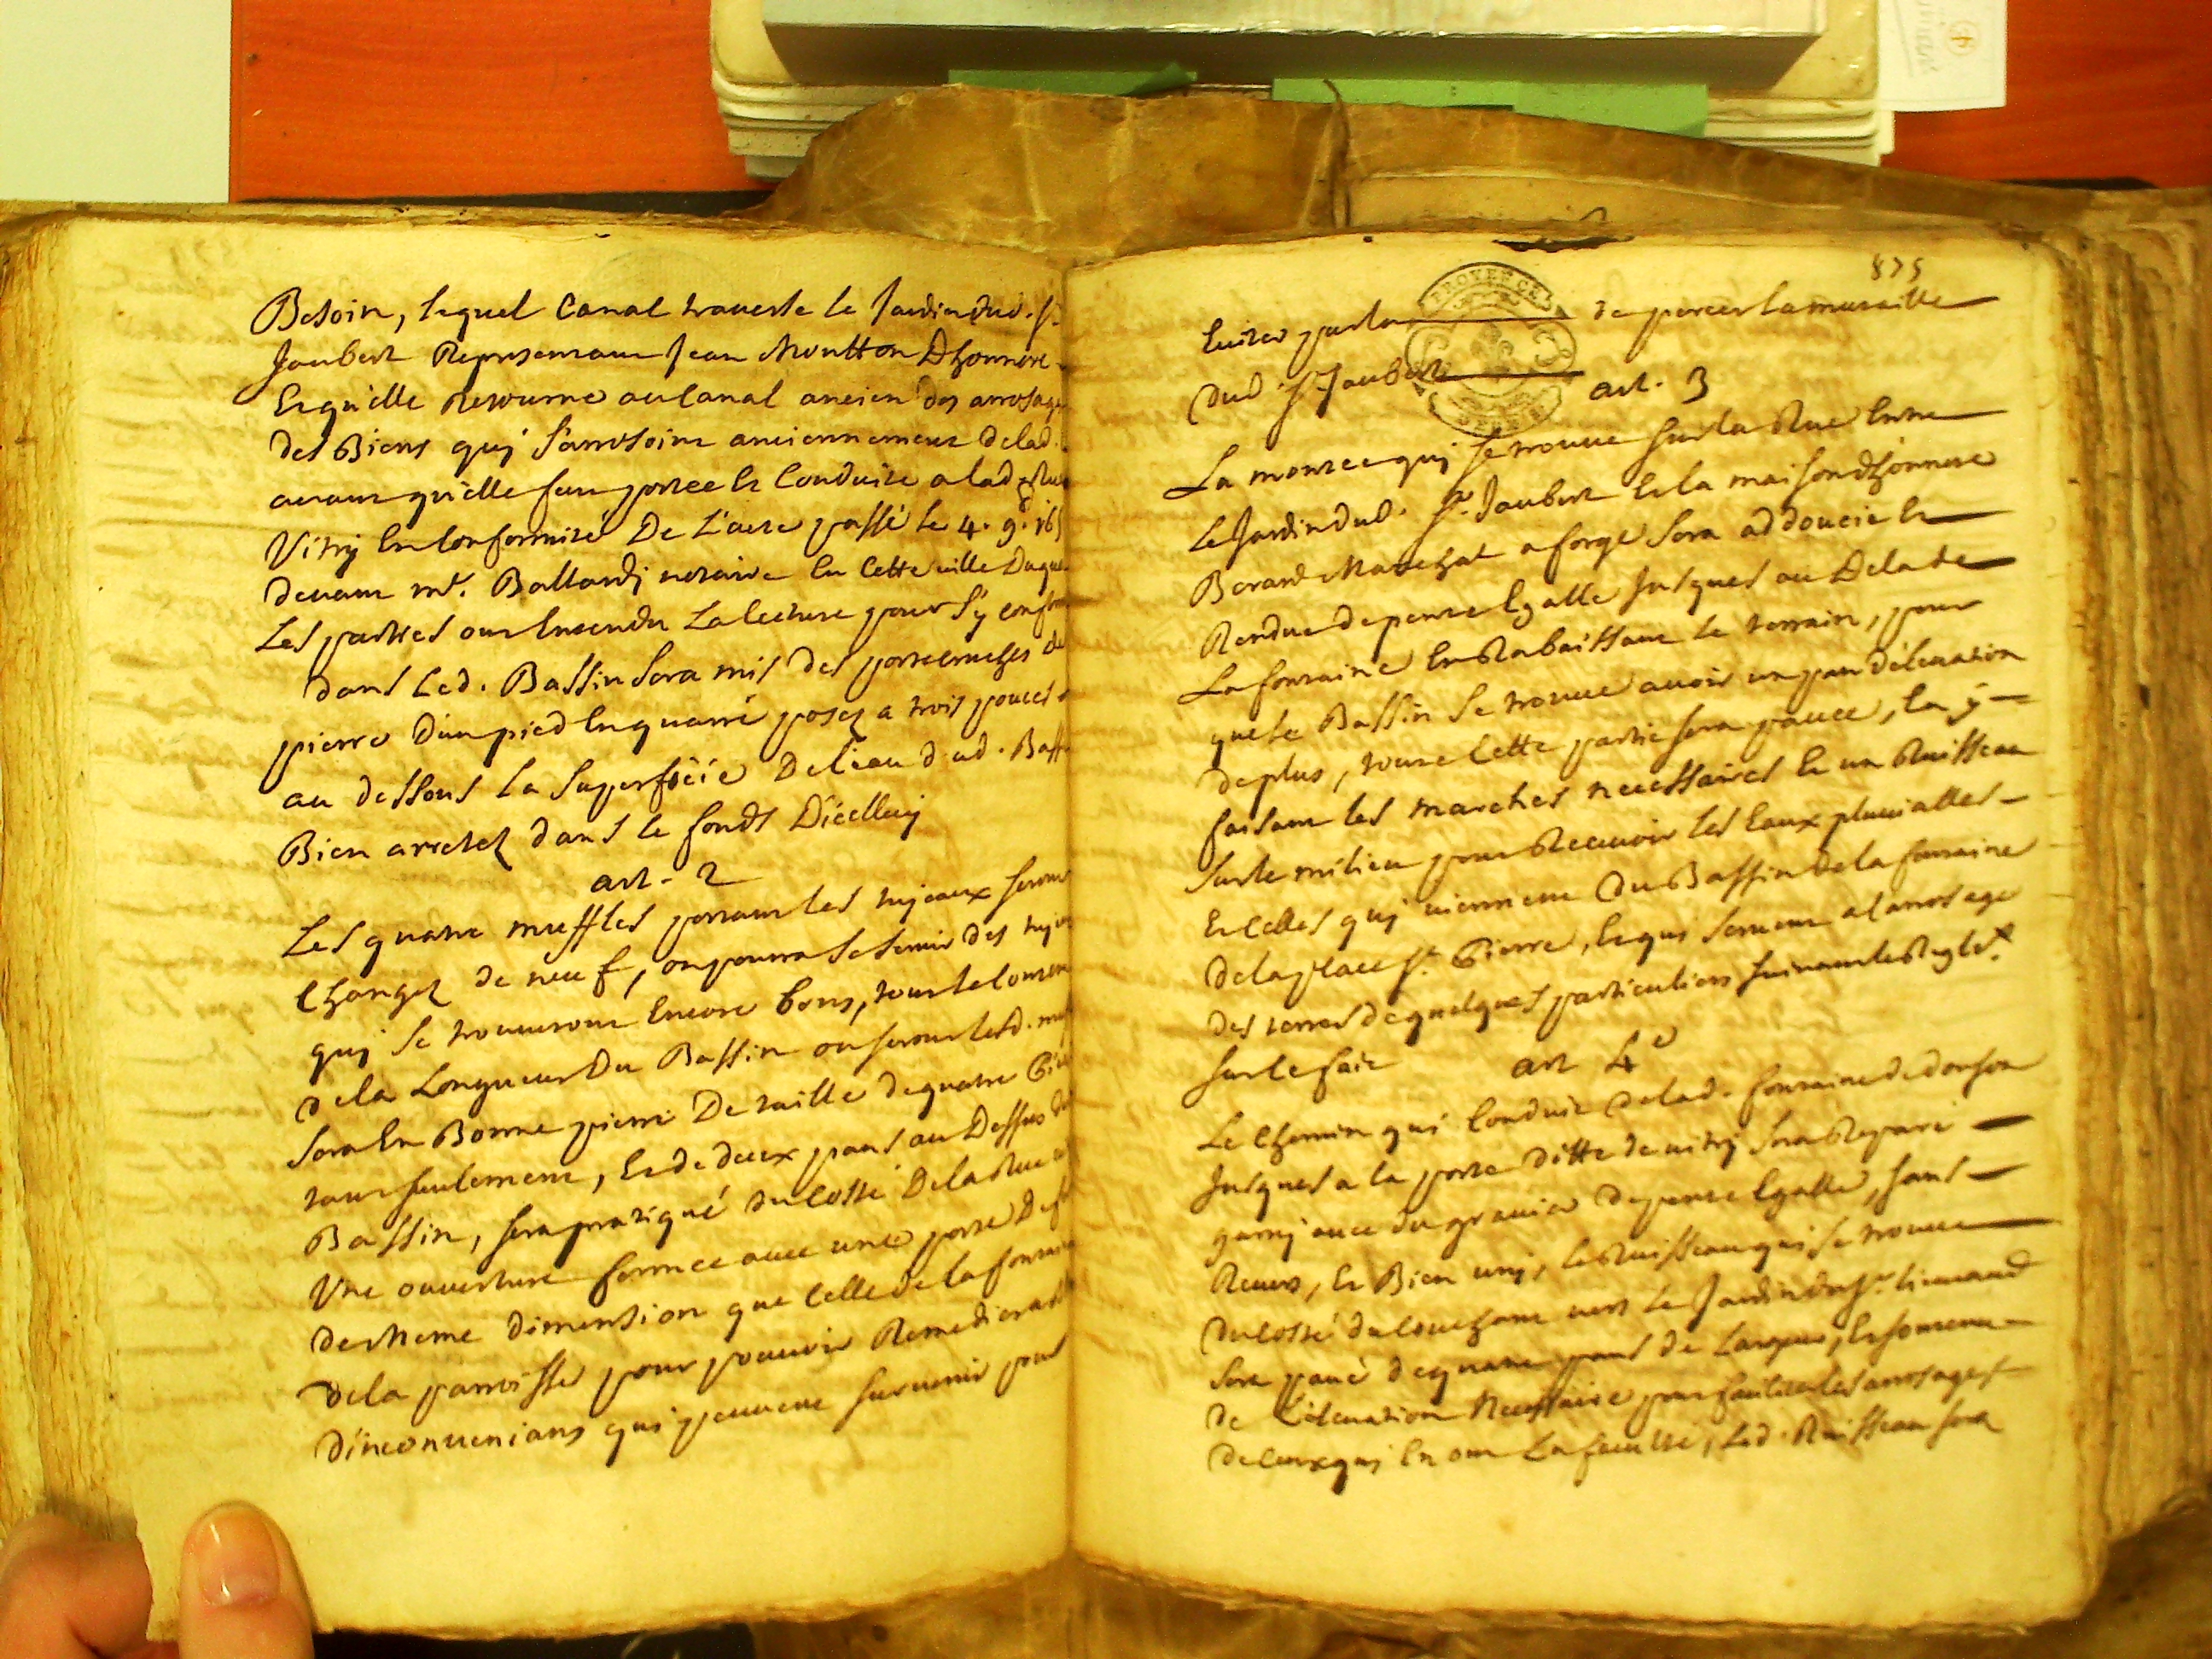 Besoin, lequel Canal traverse le Jardin dud. Sr.
Jaubert Representant Jean Moutton Dhonnoré
Et qu'elle Retourne au Canal ancien des arrosages
des Biens quj s'arrosoint anciennement delad.
avant qu'elle fut portée Et Conduite a lad. Rue
Vitrij En Conformité De L'acte passé le 4. 9.
devant me. Ballardj notaire En Cette ville Duquel
Les parties ont Entendu La lecture pour s'y
dans Led. Bassin sera mis des
pierre D'un pied En quarré posez a trois pouces
au dessous La superficie De l'eau dud. Bass
Bien arretez dans le fonds D'icelluij
art. 2
Les quatre muffles portant les tujeaux seront
Changez de neuf, on pourra se servir des
quj se trouveront Encore bons, tout le
de la Longueur Du Bassin ou seront lesd.
sera En Bonne pierre De taille de quatre
tout seulement, Et de deux pans au Dessus du
Bassin, sera pratiqué du Costé De la Rue
Une ouverture formée avec une porte De
de meme dimension que Celle de la fontaine
de la parroisse pour pouvoir Remedier
D'inconvenians qui peuvent survenir pour
875
Eviter par la de percer la muraille
dud. Sr. Jaubert
art. 3
La montée quj se trouve sur la Rue Entre
Le Jardin dud. Sr. Jaubert Et la maison dhonnoré
Berard Marechal a forge sera addoucie Et
Rendue de pente Egalle Jusques au Dela de
La fontaine En Rabaissant le terrain, pour
que le Bassin se trouve avoir un pan D'elevation
de plus, toute Cette partie sera pavée, En y
faisant les marches necessaires Et un Ruisseau
sur le milieu pour Recevoir les Eaux pluvialles
Et Celles quj viennent Du Bassin de la fontaine
de la place St. Pierre, Et qui servent a l'arrosage
des terres de quelques particuliers suivant les Reglets.
sur le fait
art 4e
Le Chemin qui Conduit delad. fontaine de
Jusques a la porte ditte de vitrij sera Reparé
garnj avec du gravier de pente Egalle, sans
Revers, Et Bien unj, le Ruisseau qui se trouve
du Costé du Couchant vers Le Jardin du Sr.
sera pavé de quatre pans de Largeur, Et
de L'elevation Necessaire pour faciliter les arrosages
de Ceux quj En ont La faculté, Led. Ruisseau sera